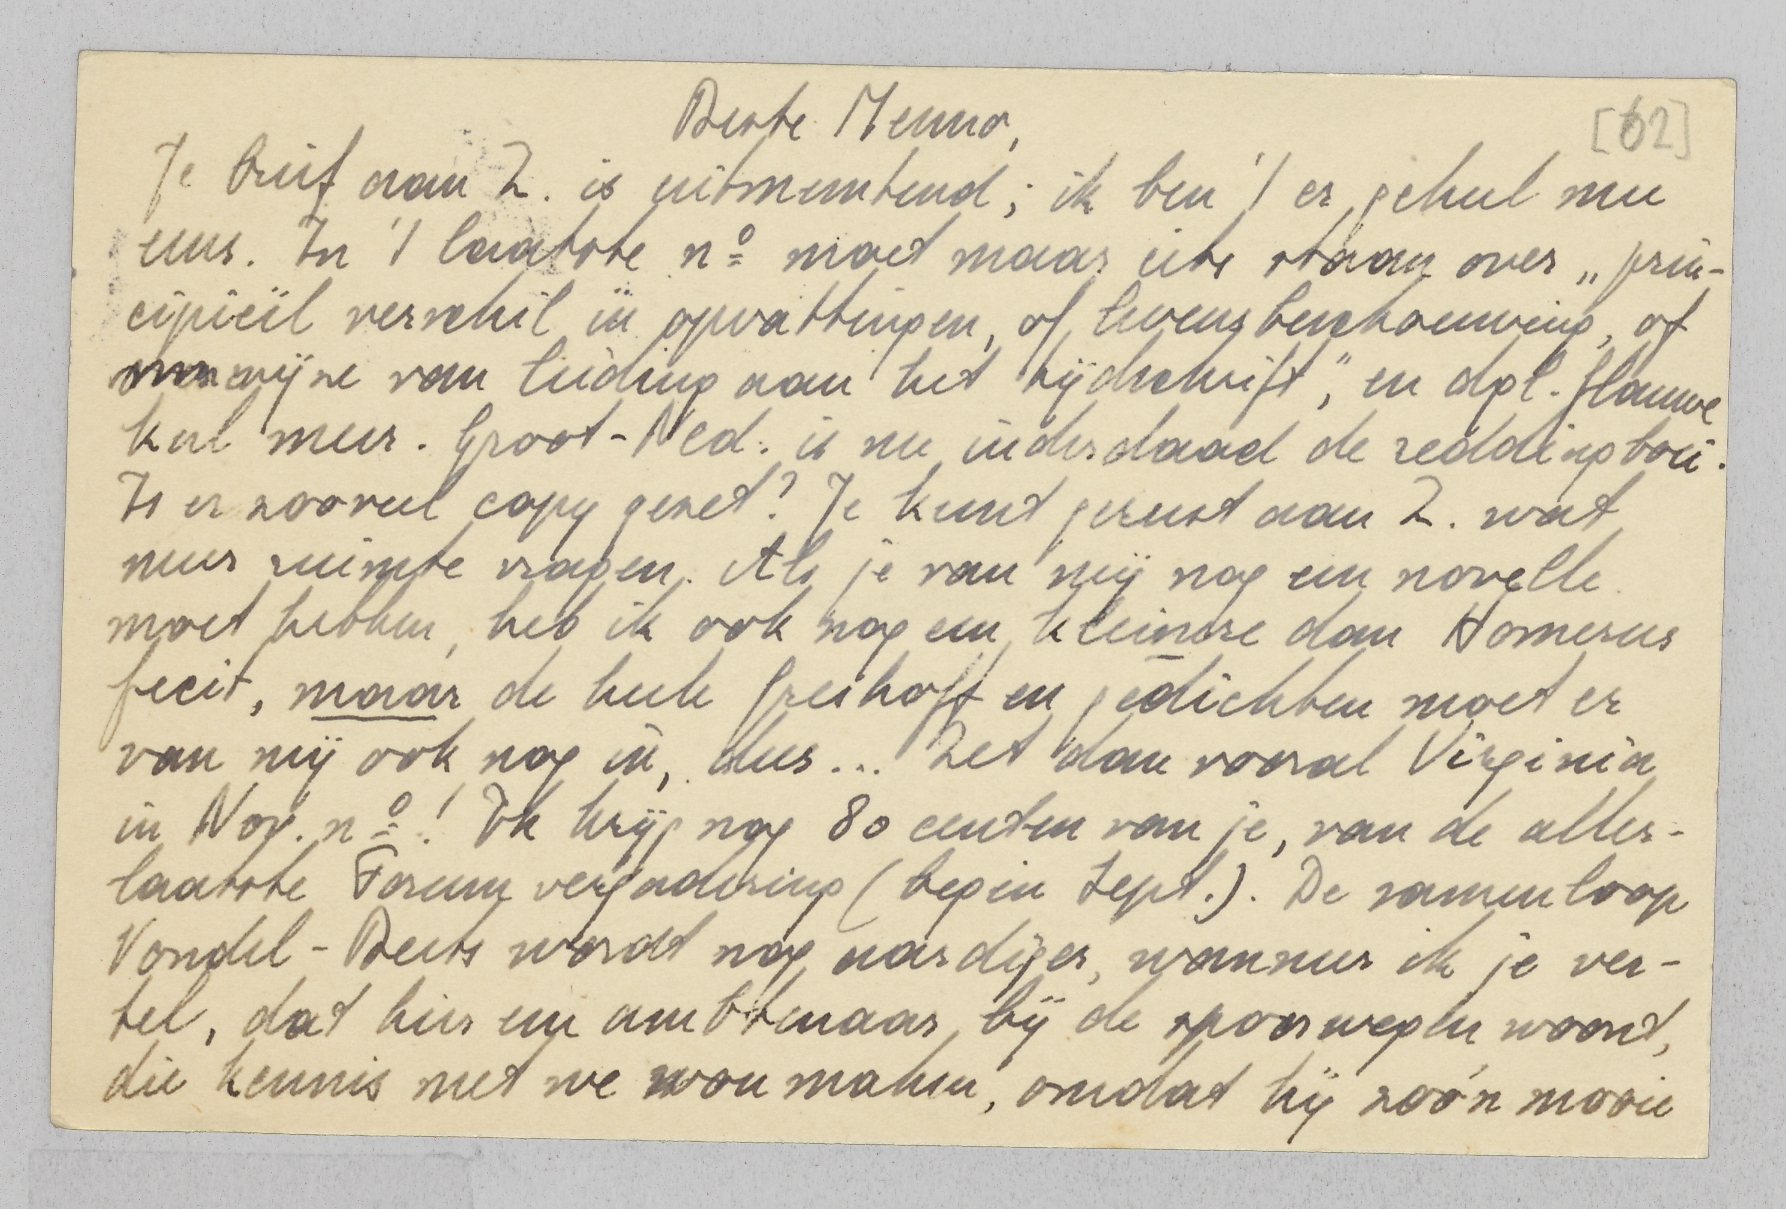 Beste Menno,
[62]
Je brief aan Z. is uitmuntend; ik ben 't er geheel mee
eens. In 't laatste nº moet maar iets staan over „prin-
cipieël verschil in opvattingen, of levensbeschouwing, of
wijze van leiding aan het tijdschrift", en dgl. flauwe
kul meer. Groot-Ned. is nu inderdaad de reddingboei.
Is er zooveel copy gezet? Je kunt gerust aan Z. wat
meer ruimte vragen. Als je van mij nog een novelle
moet hebben, heb ik ook nog een kleinere dan Homerus
fecit, maar de heele Greshoff en gedichten moet er
van mij ook nog in, dus... Zet dan vooral Virginia
in Nov. nº! Ik krijg nog 80 centen van je, van de aller-
laatste Forum vergadering (begin Sept.). De samenloop
Vondel - Beets wordt nog aardiger, wanneer ik je ver-
tel, dat hier een ambtenaar bij de spoorwegen woont,
die kennis met me wou maken, omdat hij zoo'n mooie